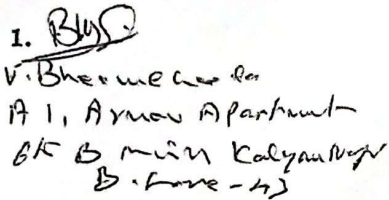 1.
V. Bheemeswara
A 1, Arnav Apartment
6th B main Kalyan Nagar
B.lore - 43